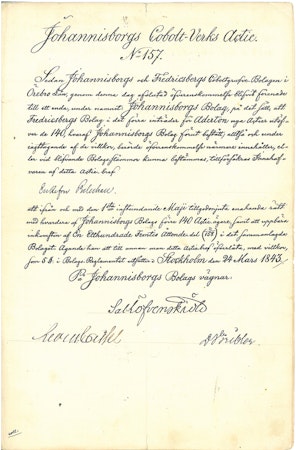 Johannisborgs Cobolt-Verks Actie.
No 157.
Sedan Johannisbergs och Fredricsbergs Coboltgrufve Bolagen i
Örebro Län, genom denna dag afslutad öfverenskommelse blifvit förenade
till ett enda, under namnet Johannisborgs Bolag, på det sätt, att
Fredricsbergs Bolag i det förra inträder för Aderton nya Actier utöf-
ver de 140, hvaraf Johannisborgs Bolag förut bestått, alltså och under
iagttagande af de vilkor, berörde öfverenskommelse närmare innehåller, el-
ler vid blifvande Bolagsstämmor kunna bestämmas, tillförsäkras Innehafva-
ren af detta Actie bref
att ifrån och med den 1sta instundande Maji tillgodonjuta enahanda rätt
med hvardera af Johannisborgs Bolags förre 140 Actie ägare, samt att uppbära
inkomsten af En Etthundrade Femtio Attondedel (1/158) i det sammanlagda
Bolaget. Ägande han att till annan man detta Actiebref öfverlåta, med vilkor,
som § 8. i Bolags Reglementet utsätter. Stockholm den 24 Mars 1843.
På Johannisborgs Bolags vägnar.